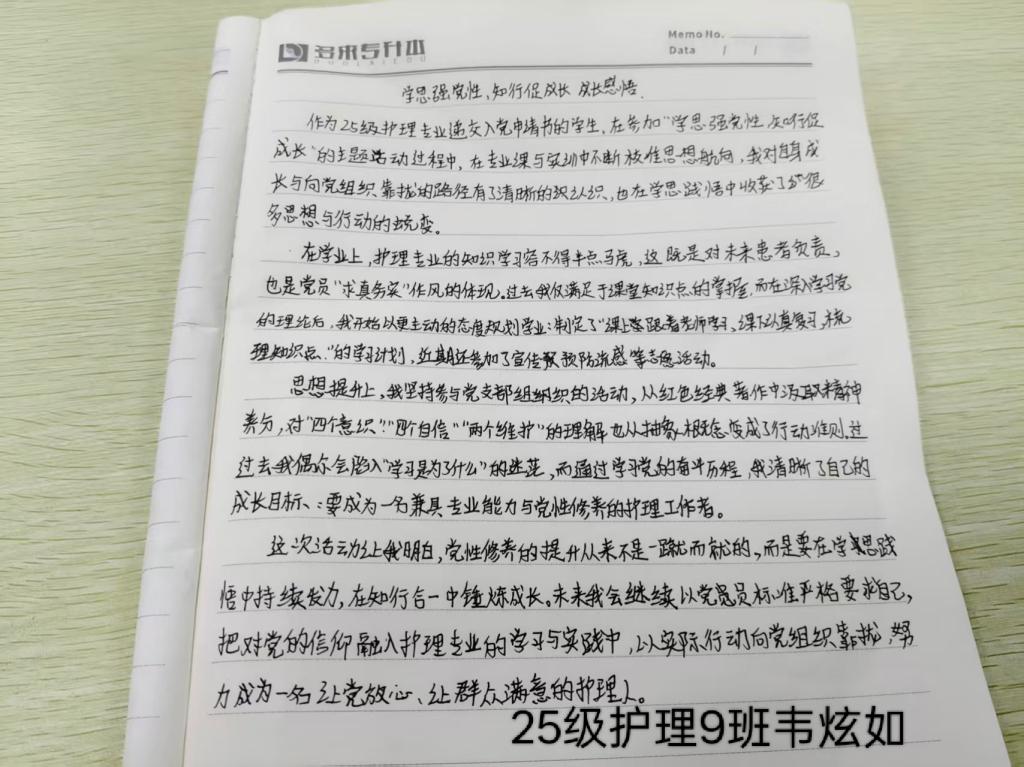 多来专升本
DUOLAIEDU
Memo No.
Data / /
学思强党性、知行促成长 成长感悟.
作为25级护理专业递交入党申请书的学生,在参加“学思强党性 知行促
成长”的主题活动过程中,在专业课与实训中不断校准思想航向,我对自身成
长与向党组织靠拢的路径有了清晰的认识,也在学思践悟中收获了很
多思想与行动的蜕变。
在学业上,护理专业的知识学习容不得半点马虎,这既是对未来患者负责,
也是党员“求真务实”作风的体现。过去我仅满足于课堂知识点的掌握,而在深入学习党
的理论后,我开始以更主动的态度规划学业:制定了“课上紧跟着老师学习,课下认真复习,梳
理知识点.”的学习计划,近期还参加了宣传预防流感等志愿活动。
思想提升上,我坚持参与党支部组织的活动,从红色经典著作中汲取精神
养分,对“四个意识”“四个自信”“两个维护”的理解也从抽象概念变成了行动准则,过
过去我偶尔会陷入“学习是为了什么”的迷茫,而通过学习党的奋斗历程,我清晰了自己的
成长目标、:要成为一名兼具专业能力与党性修养的护理工作者。
这次活动让我明白,党性修养的提升从来不是一蹴而就的,而是要在学思践
悟中持续发力,在知行合一中锤炼成长。未来我会继续以党员标准严格要求自己,
把对党的信仰融入护理专业的学习与实践中,以实际行动向党组织靠拢,努
力成为一名让党放心、让群众满意的护理人。
25级护理9班韦炫如